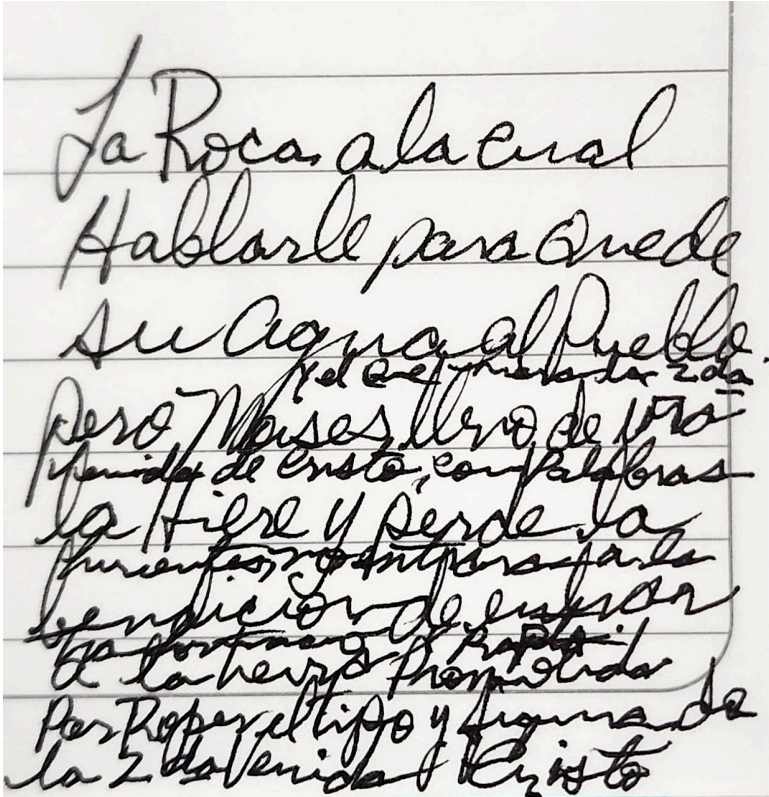 La Roca, a la cual
Hablarle para que de
su agua al Pueblo.
y el que 2da
Pero Moises lleno de ira
Venida de Cristo, con Palabras
la Hiere y Pierde la
bendicion de entrar
a la tierra Prometida
Por Roper el tipo y figura de
la 2da Venida Cristo